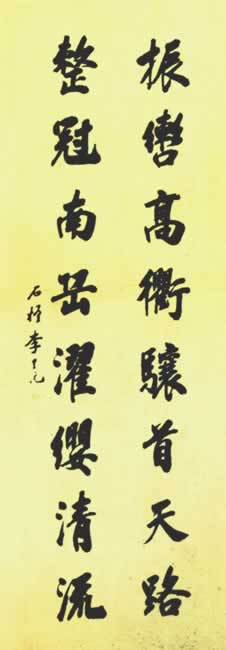 振轡高衢驤首天路
整冠南岳濯纓清流
石李